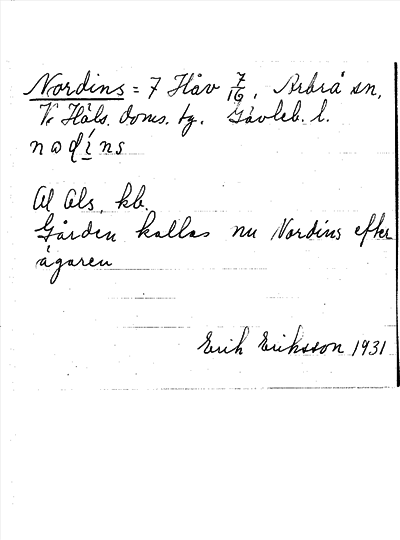 Nordins = 7 Håv 7/16, Arbrå sn,
V. Häls. doms. tg. Gävleb. l.
nɷɖí̲ns
Al Als, kb.
Gården kallas nu Nordins efter
ägaren
Erik Eriksson 1931